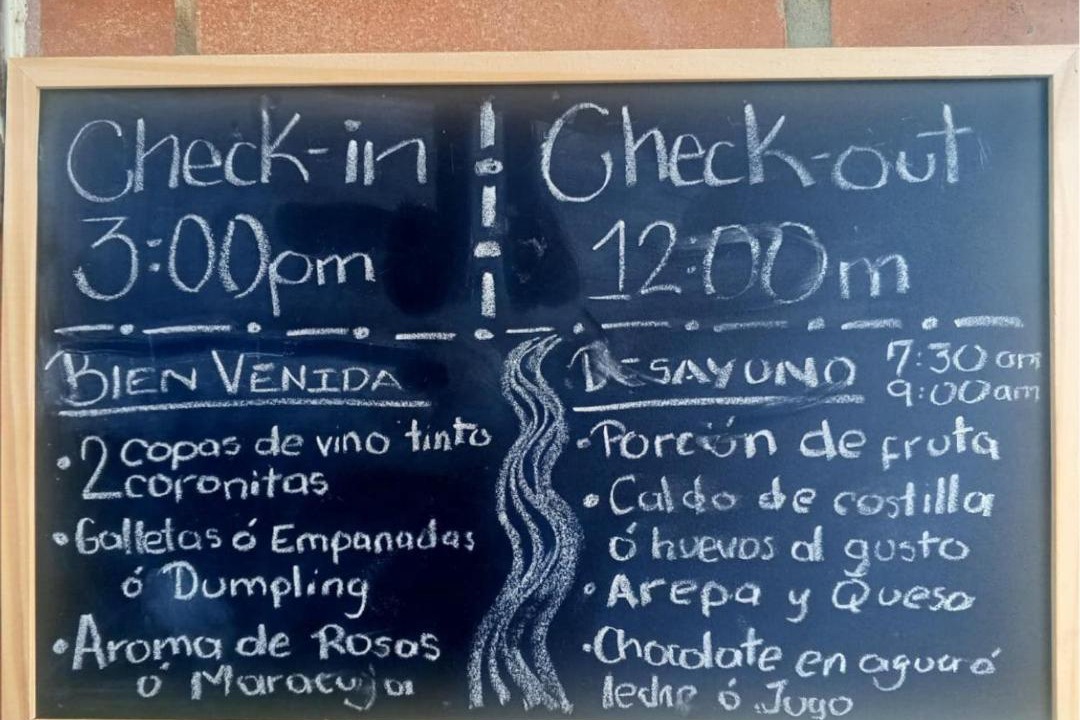 Check-in
3:00pm
BIEN VENIDA
• 2 copas de vino tinto
coronitas
• Galletas ó Empanadas
ó Dumpling
• Aroma de Rosas
ó Maracuya
Check-out
12:00m
DESAYUNO 7:30am
9:00am
• Porción de fruta
• Caldo de costilla
ó huevos al gusto
• Arepa y Queso
• Chocolate en agua ó
leche ó Jugo